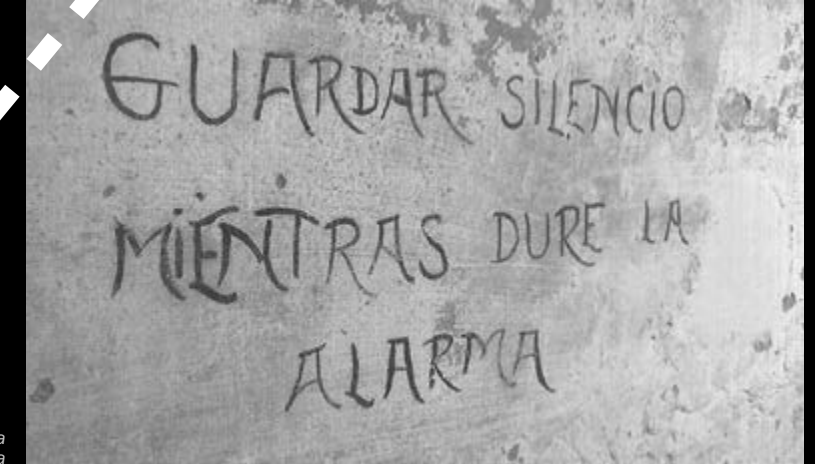 GUARDAR SILENCIO
MIENTRAS DURE LA
ALARMA
a
a